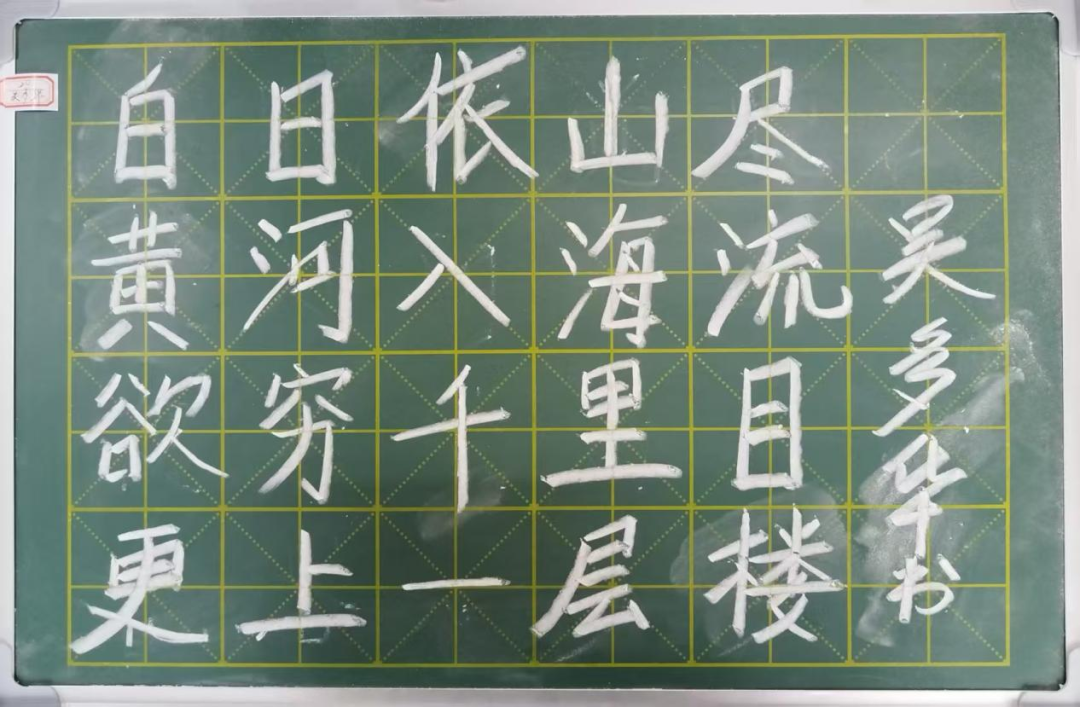 白日依山尽
黄河入海流
欲穷千里目
更上一层楼
吴多华书